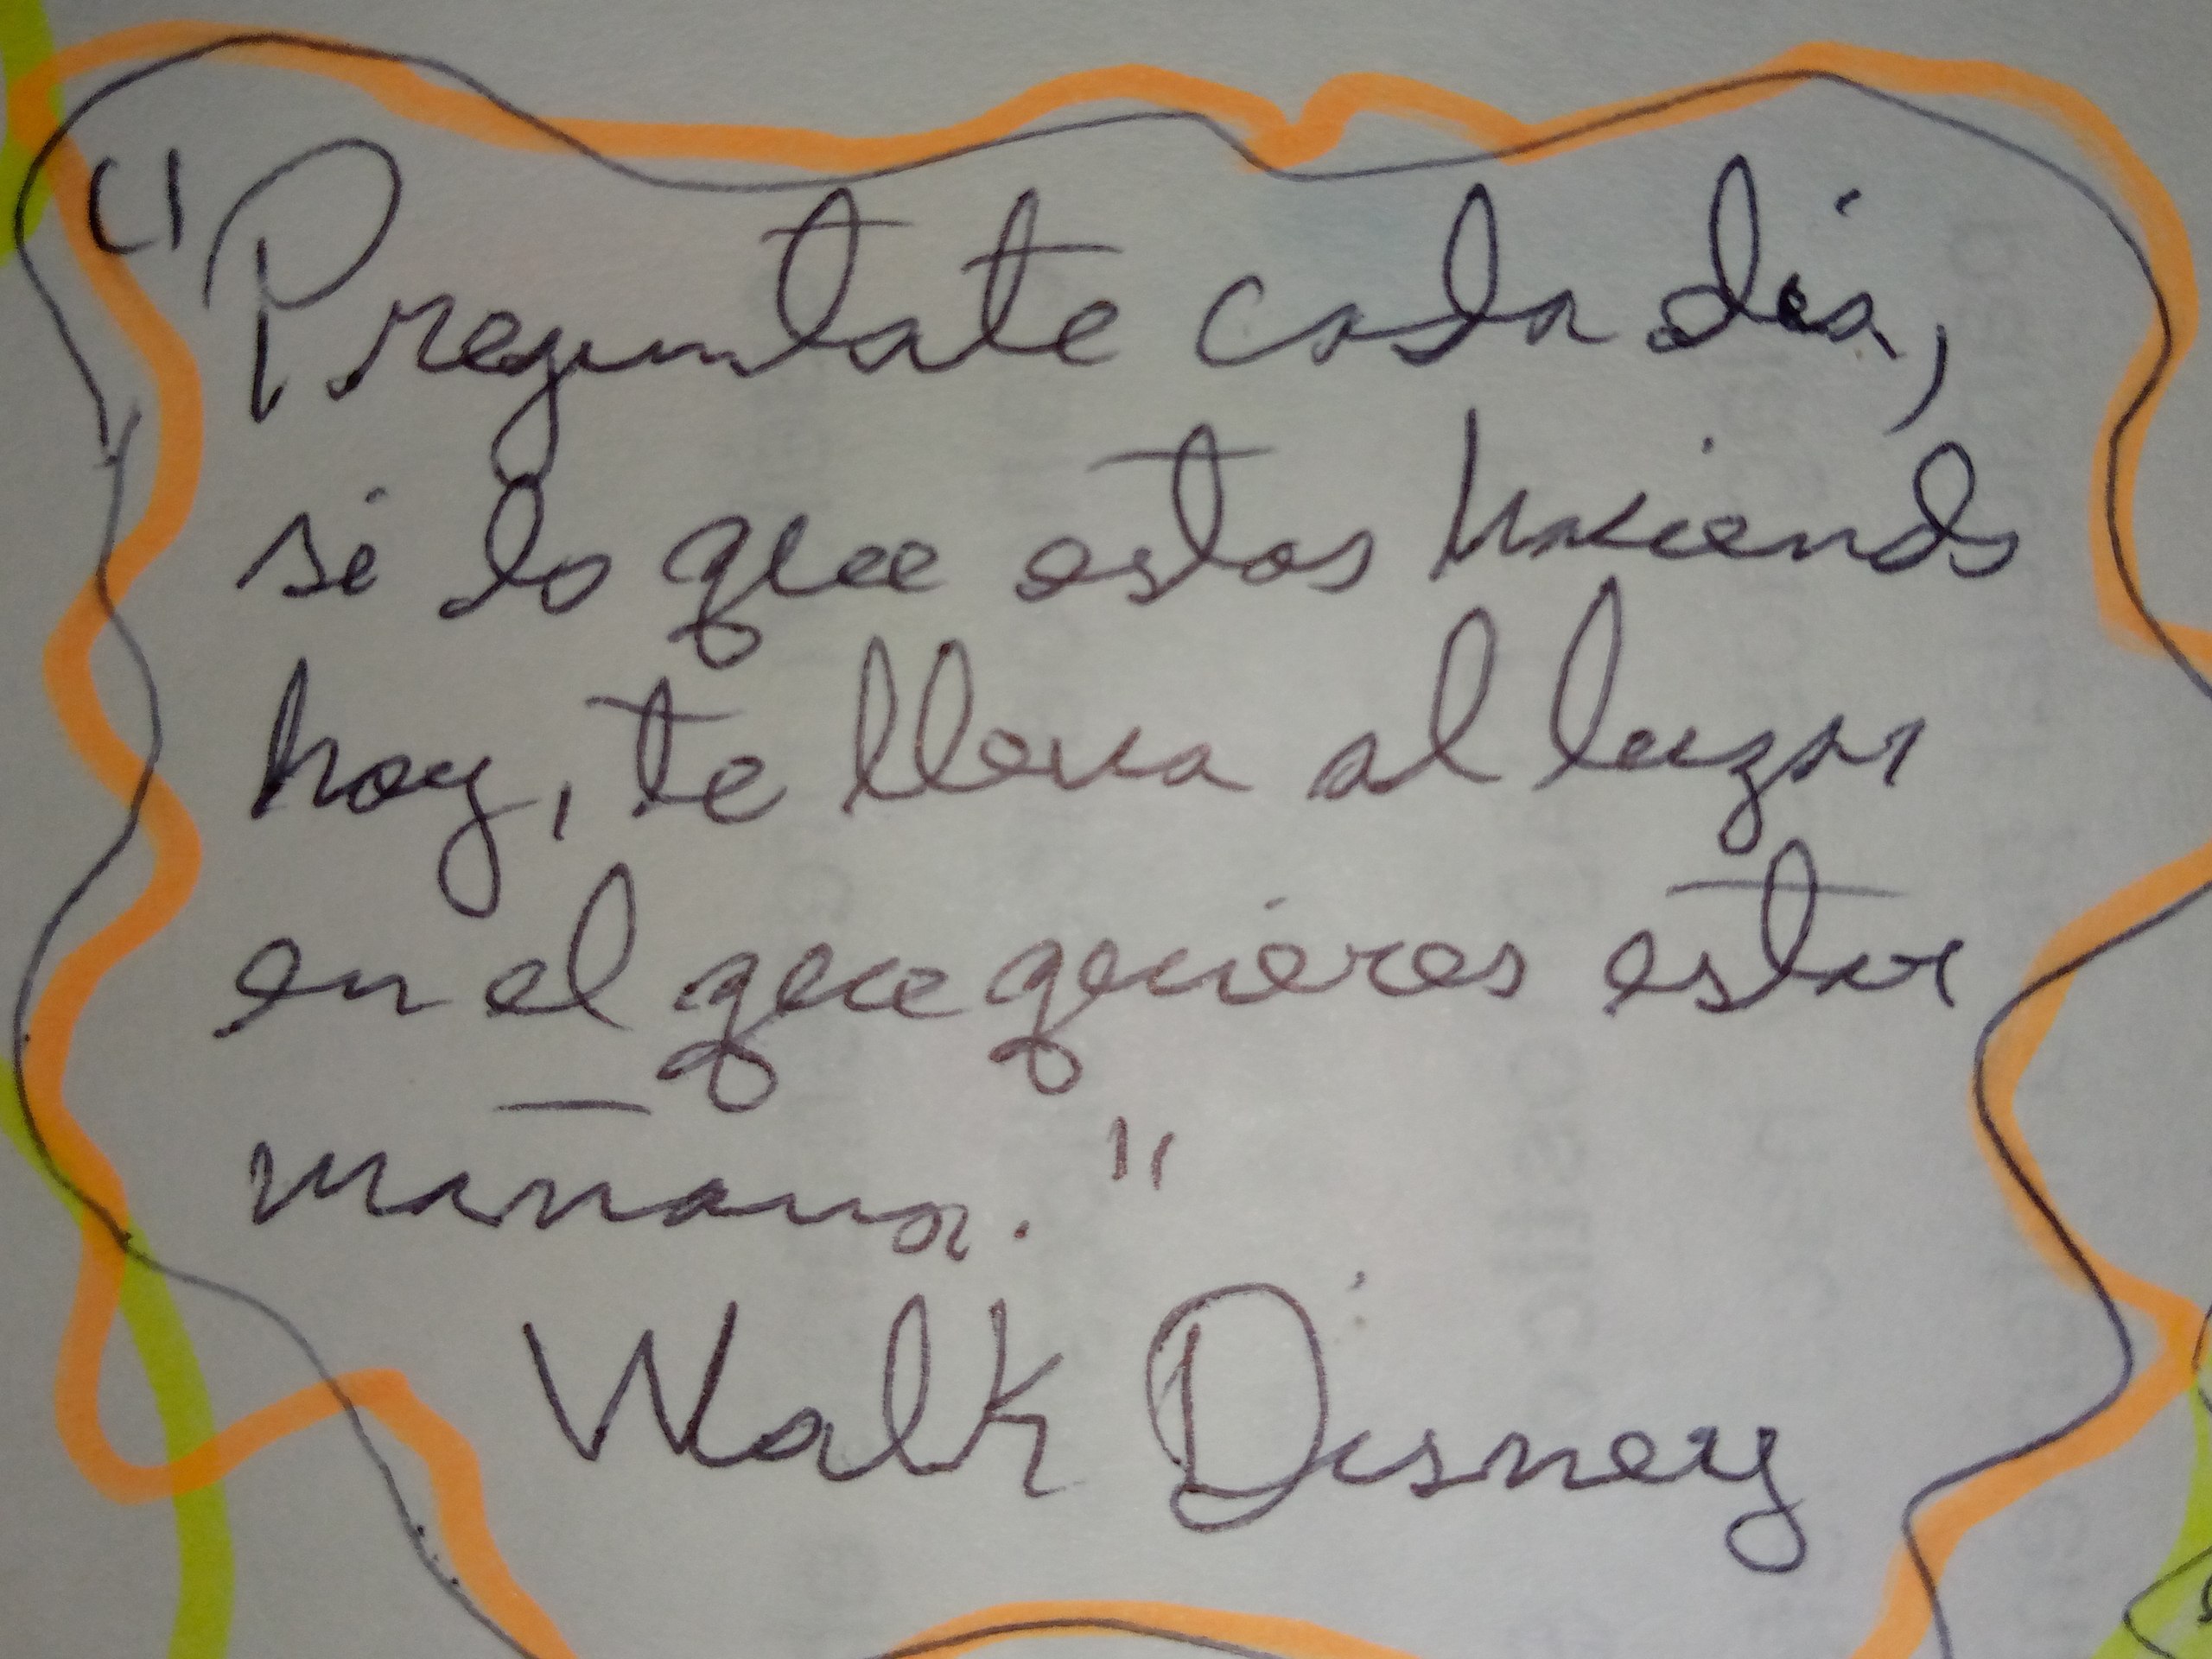 "Preguntate cada día,
si lo que estas haciendo
hoy, te lleva al lugar
en el que quieres estar
mañana."
Walk Disney